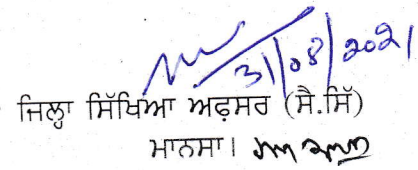 31/08/2021
ਜਿਲ੍ਹਾ ਸਿੱਖਿਆ ਅਫ਼ਸਰ (ਸੈ.ਸਿੱ)
ਮਾਨਸਾ।